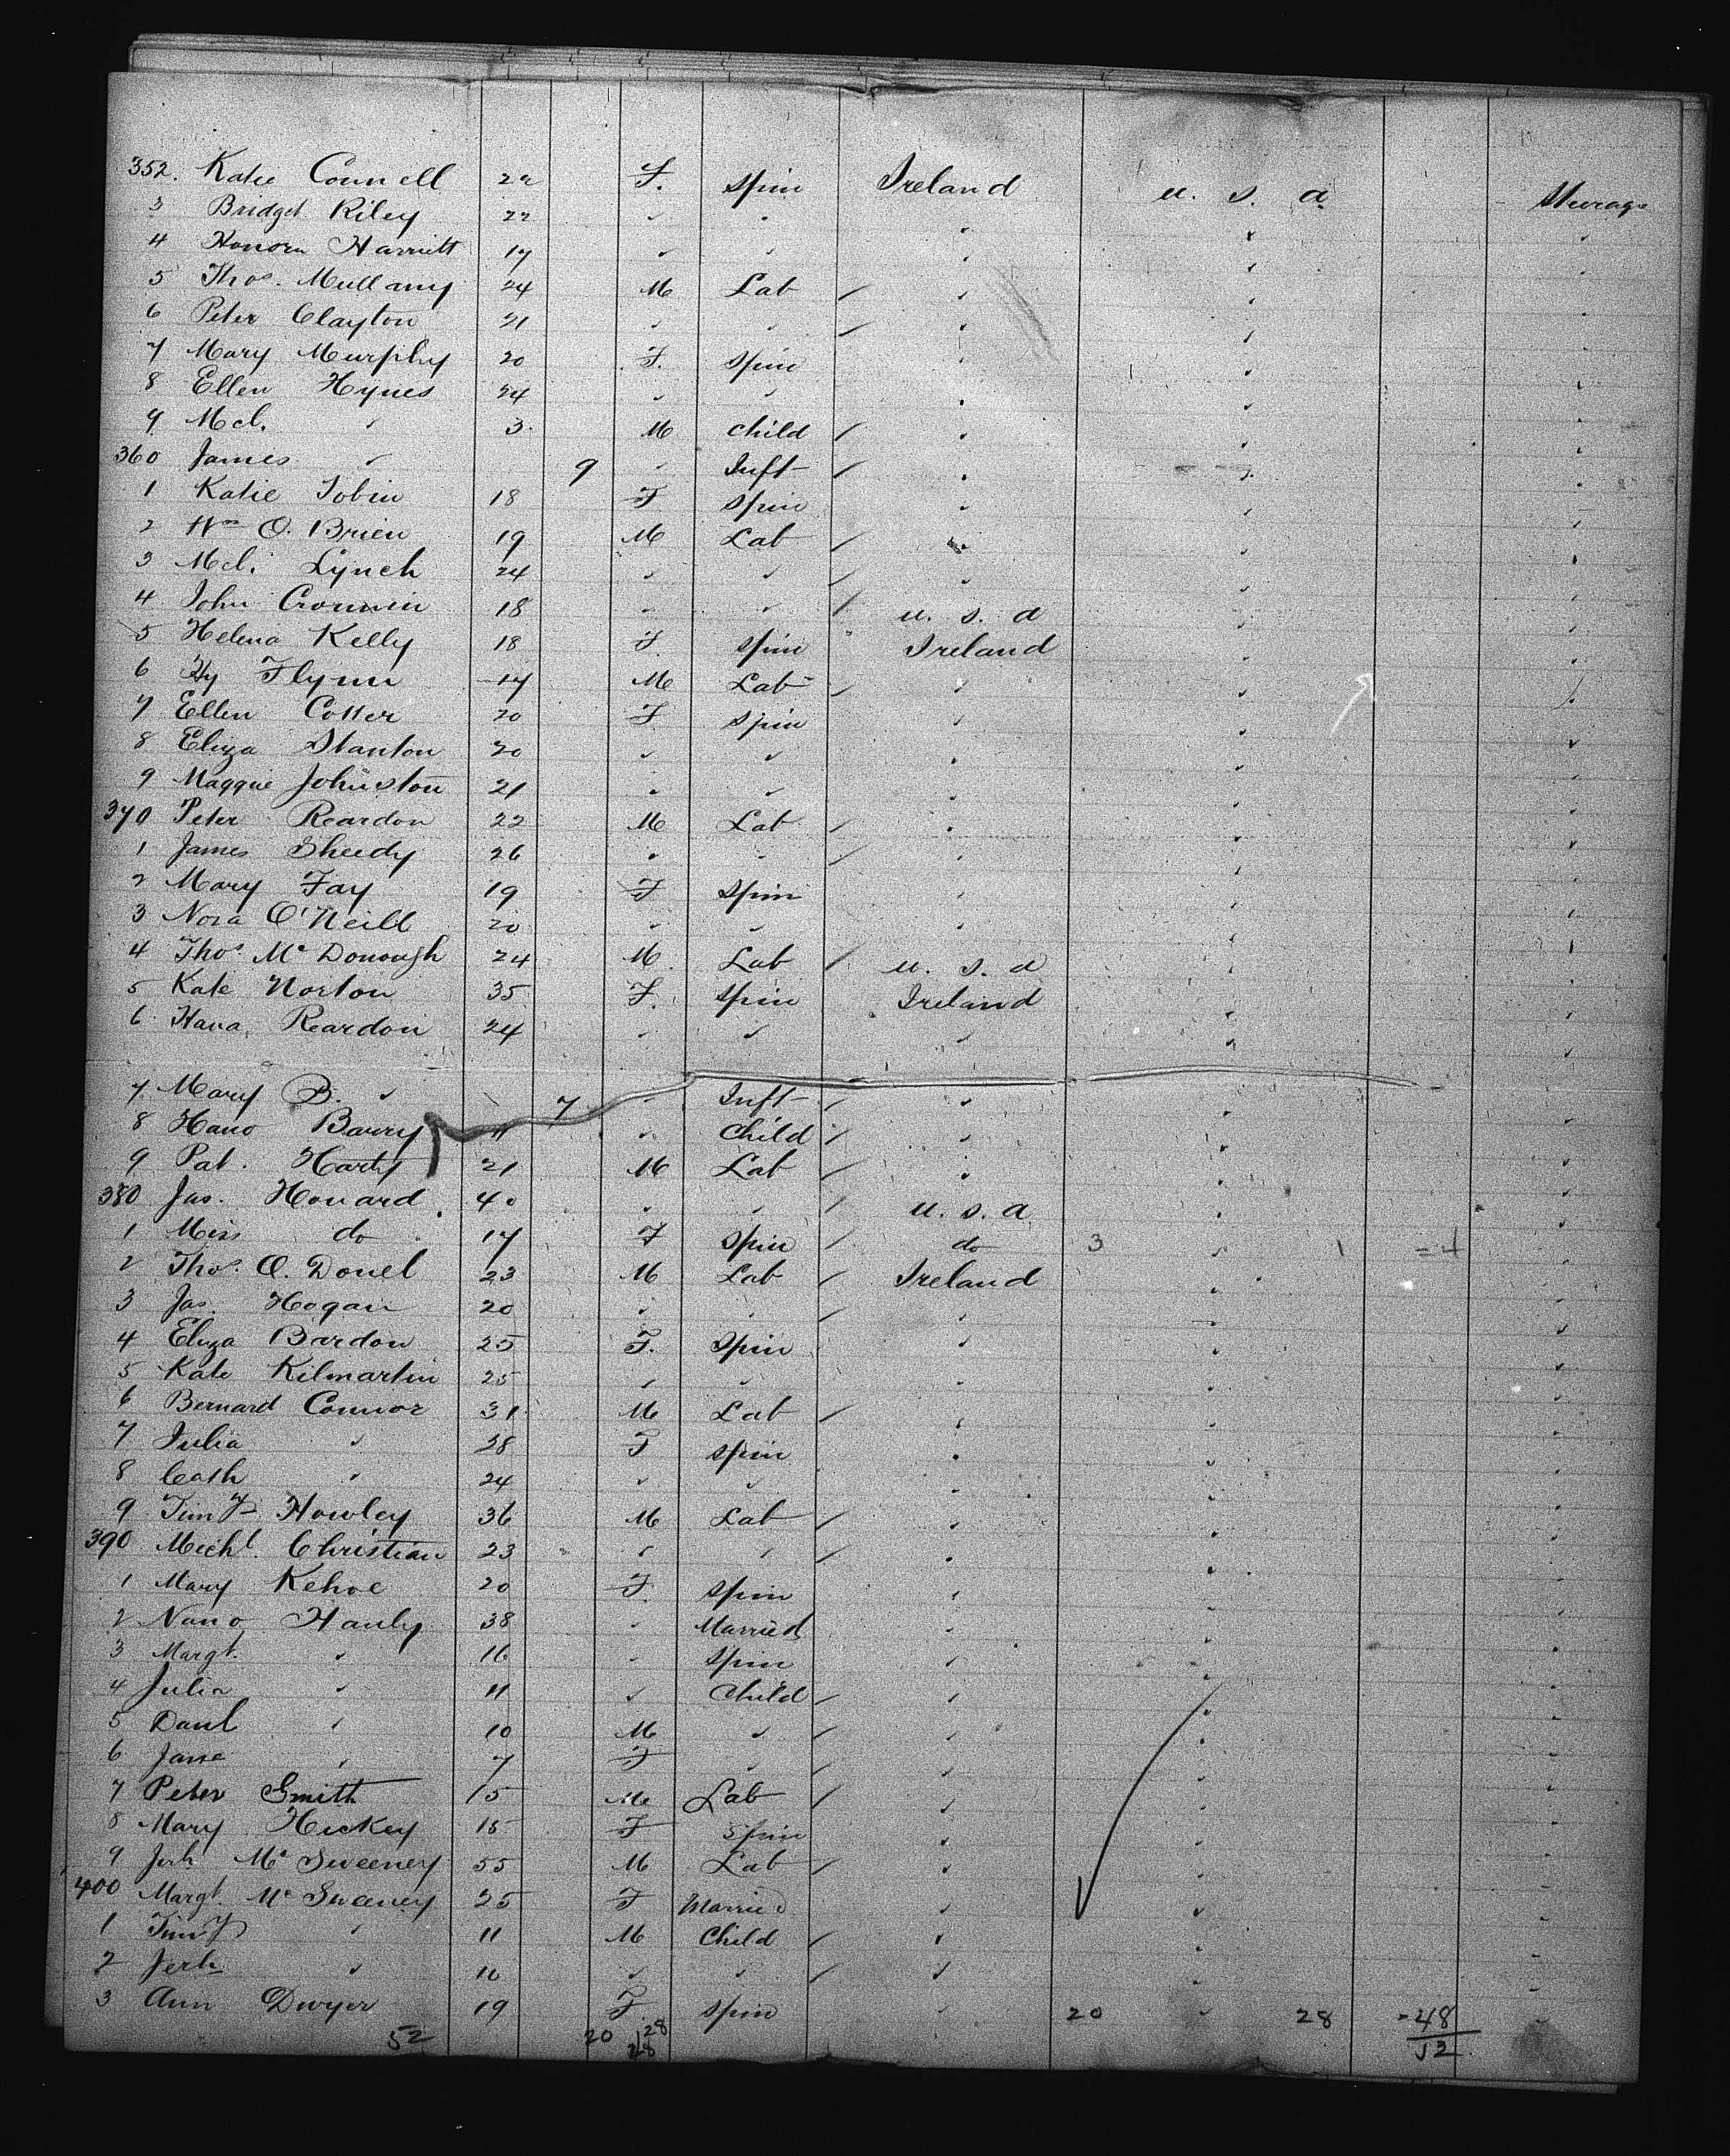 352. Katie Connell 22 F. Spin Ireland U. S. A. Steerage
3 Bridget Riley 22 " "
4 Honora Harriett 17 " "
5 Thos. Mullany 24 M Lab / "
6 Peter Clayton 21 " " / "
7 Mary Murphy 20 F. Spin "
8 Ellen Hynes 24 " " "
9 Mcl. " 3 M Child / "
360 James " 9 " Inft / "
1 Katie Tobin 18 F Spin "
2 Wm O. Brien 19 M Lab / "
3 Mcl. Lynch 24 " " / "
4 John Cronnin 18 " " / U. S. A
5 Helena Kelly 18 F. Spin " Ireland
6 Hy Flynn 17 M Lab / "
7 Ellen Cotter 20 F Spin "
8 Eliza Stanton 20 " " "
9 Maggie Johnston 21 " " "
370 Peter Reardon 22 M Lab / "
1 James Sheedy 26 " " / "
2 Mary Fay 19 F Spin "
3 Nora O'Neill 20 " " "
4 Thos. Mc Donough 24 M. Lab / U. S. A
5 Kate Norton 35 F. Spin Ireland
6 Hana Reardon 24 " " "
7 Mary B. " 7 " Inft / "
8 Hano Barry 11 " Child / "
9 Pat. Harty 21 M Lab / "
380 Jas. Howard. 40 " " / U. S. A
1 Miss do 17 F Spin / do 3 " 1 = 4
2 Thos. O. Donel 23 M Lab / Ireland
3 Jas. Hogan 20 " " / "
4 Eliza Bardon 25 F. Spin "
5 Kate Kilmartin 25 " " "
6 Bernard Connor 31 M Lab / "
7 Julia " 28 F Spin "
8 Cath " 24 " " "
9 Timy Howley 36 M Lab / "
390 Michl. Christian 23 " " / "
1 Mary Kehoe 20 F. Spin "
2 Nano Hauly 38 " Married "
3 Margt. " 16 " Spin "
4 Julia " 11 " Child / "
5 Danl " 10 M " / "
6 Jane " 7 F " / "
7 Peter Smith 15 M Lab / "
8 Mary Hickey 15 F Spin "
9 Jerh Mc Sweeney 55 M Lab / "
400 Margt Mc Sweeney 25 F Married "
1 Timy " 11 M Child / "
2 Jerh " 10 " " / "
3 Ann Dwyer 19 F. Spin " 20 " 28 = 48
52 20 28 52
28